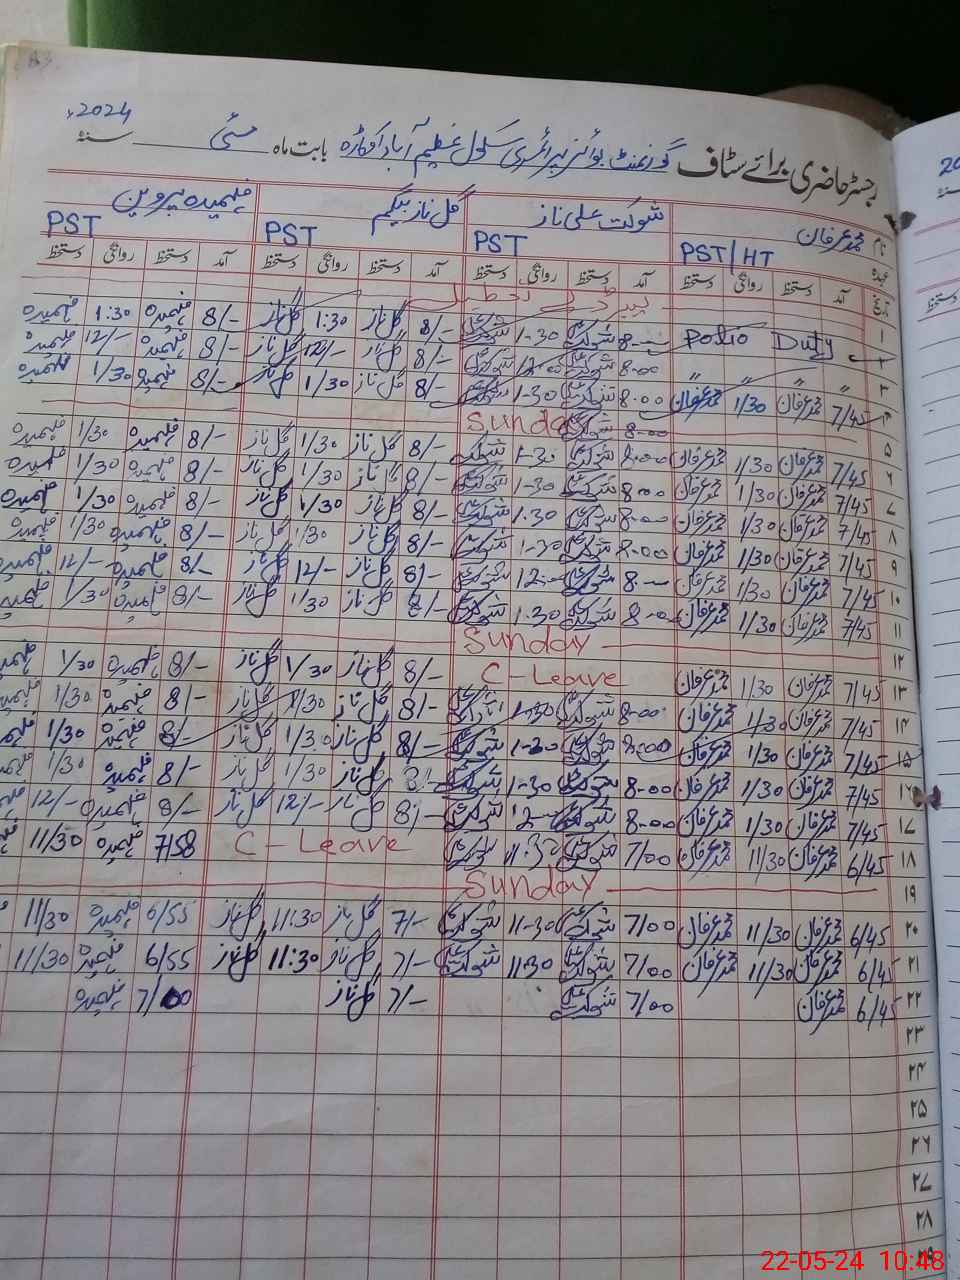 2024ء
رجسٹر حاضری برائے سٹاف گورنمنٹ بوائز پرائمری سکول عظیم آباد اوکاڑہ بابت ماہ مئی سنہ
نام محمد عرفان شوکت علی ناز گل ناز بیگم فہمیدہ پروین
عہدہ PST/HT PST PST PST
تاریخ آمد دستخط روانگی دستخط آمد دستخط روانگی دستخط آمد دستخط روانگی دستخط آمد دستخط روانگی دستخط
۱
۲ Polio Duty 8-00 شوکت 1-30 شوکت 8/- گل ناز 1:30 گل ناز 8/- فہمیدہ 1:30 فہمیدہ
۳ " " " " 8-00 شوکت شوکت 8/- گل ناز 12/- گل ناز 8/- فہمیدہ 12/- فہمیدہ
۴ 7/45 محمد عرفان 1/30 محمد عرفان 8-00 شوکت 1-30 شوکت 8/- گل ناز 1/30 گل ناز 8/- فہمیدہ 1/30 فہمیدہ
۵ Sunday 8-00
۶ 7/45 محمد عرفان 1/30 محمد عرفان 8-00 شوکت 1-30 شوکت 8/- گل ناز 1/30 گل ناز 8/- فہمیدہ 1/30 فہمیدہ
۷ 7/45 محمد عرفان 1/30 محمد عرفان 8-00 شوکت 1-30 شوکت 8/- گل ناز 1/30 گل ناز 8/- فہمیدہ 1/30 فہمیدہ
۸ 7/45 محمد عرفان 1/30 محمد عرفان 8-00 شوکت 1.30 شوکت 8/- گل ناز 1/30 گل ناز 8/- فہمیدہ 1/30 فہمیدہ
۹ 7/45 محمد عرفان 1/30 محمد عرفان 8-00 شوکت 1-30 شوکت 8/- گل ناز 1/30 گل ناز 8/- فہمیدہ 1/30 فہمیدہ
۱۰ 7/45 محمد عرفان 1/30 محمد عرفان 8-- شوکت 12-- شوکت 8/- گل ناز 12/- گل ناز 8/- فہمیدہ 12/- فہمیدہ
۱۱ 7/45 محمد عرفان 1/30 محمد عرفان 8-0 شوکت 1.30 شوکت 8/- گل ناز 1/30 گل ناز 8/- فہمیدہ 1/30 فہمیدہ
۱۲ Sunday
۱۳ 7/45 محمد عرفان 1/30 محمد عرفان C-Leave 8/- گل ناز 1/30 گل ناز 8/- فہمیدہ 1/30 فہمیدہ
۱۴ 7/45 محمد عرفان 1/30 محمد عرفان 8-00 شوکت 1-30 شوکت 8/- گل ناز 1/30 گل ناز 8/- فہمیدہ 1/30 فہمیدہ
۱۵ 7/45 محمد عرفان 1/30 محمد عرفان 8-00 شوکت 1-30 شوکت 8/- گل ناز 1/30 گل ناز 8/- فہمیدہ 1/30 فہمیدہ
۱۶ 7/45 محمد عرفان 1/30 محمد عرفان 8-00 شوکت 1-30 شوکت 8/- گل ناز 1/30 گل ناز 8/- فہمیدہ 1/30 فہمیدہ
۱۷ 7/45 محمد عرفان 1/30 محمد عرفان 8-00 شوکت 12-- شوکت 8/- گل ناز 12/- گل ناز 8/- فہمیدہ 12/- فہمیدہ
۱۸ 6/45 محمد عرفان 11/30 محمد عرفان 7/00 شوکت 11.30 شوکت C-Leave 7/58 فہمیدہ 11/30
۱۹ Sunday
۲۰ 6/45 محمد عرفان 11/30 محمد عرفان 7/00 شوکت 11-30 شوکت 7/- گل ناز 11:30 گل ناز 6/55 فہمیدہ 11/30
۲۱ 6/45 محمد عرفان 11/30 محمد عرفان 7/00 شوکت 11.30 شوکت 7/- گل ناز 11:30 گل ناز 6/55 فہمیدہ 11/30
۲۲ 6/45 محمد عرفان 7/00 شوکت 7/- گل ناز 7/00 فہمیدہ
۲۳
۲۴
۲۵
۲۶
۲۷
۲۸
۲۹
22-05-24 10:48